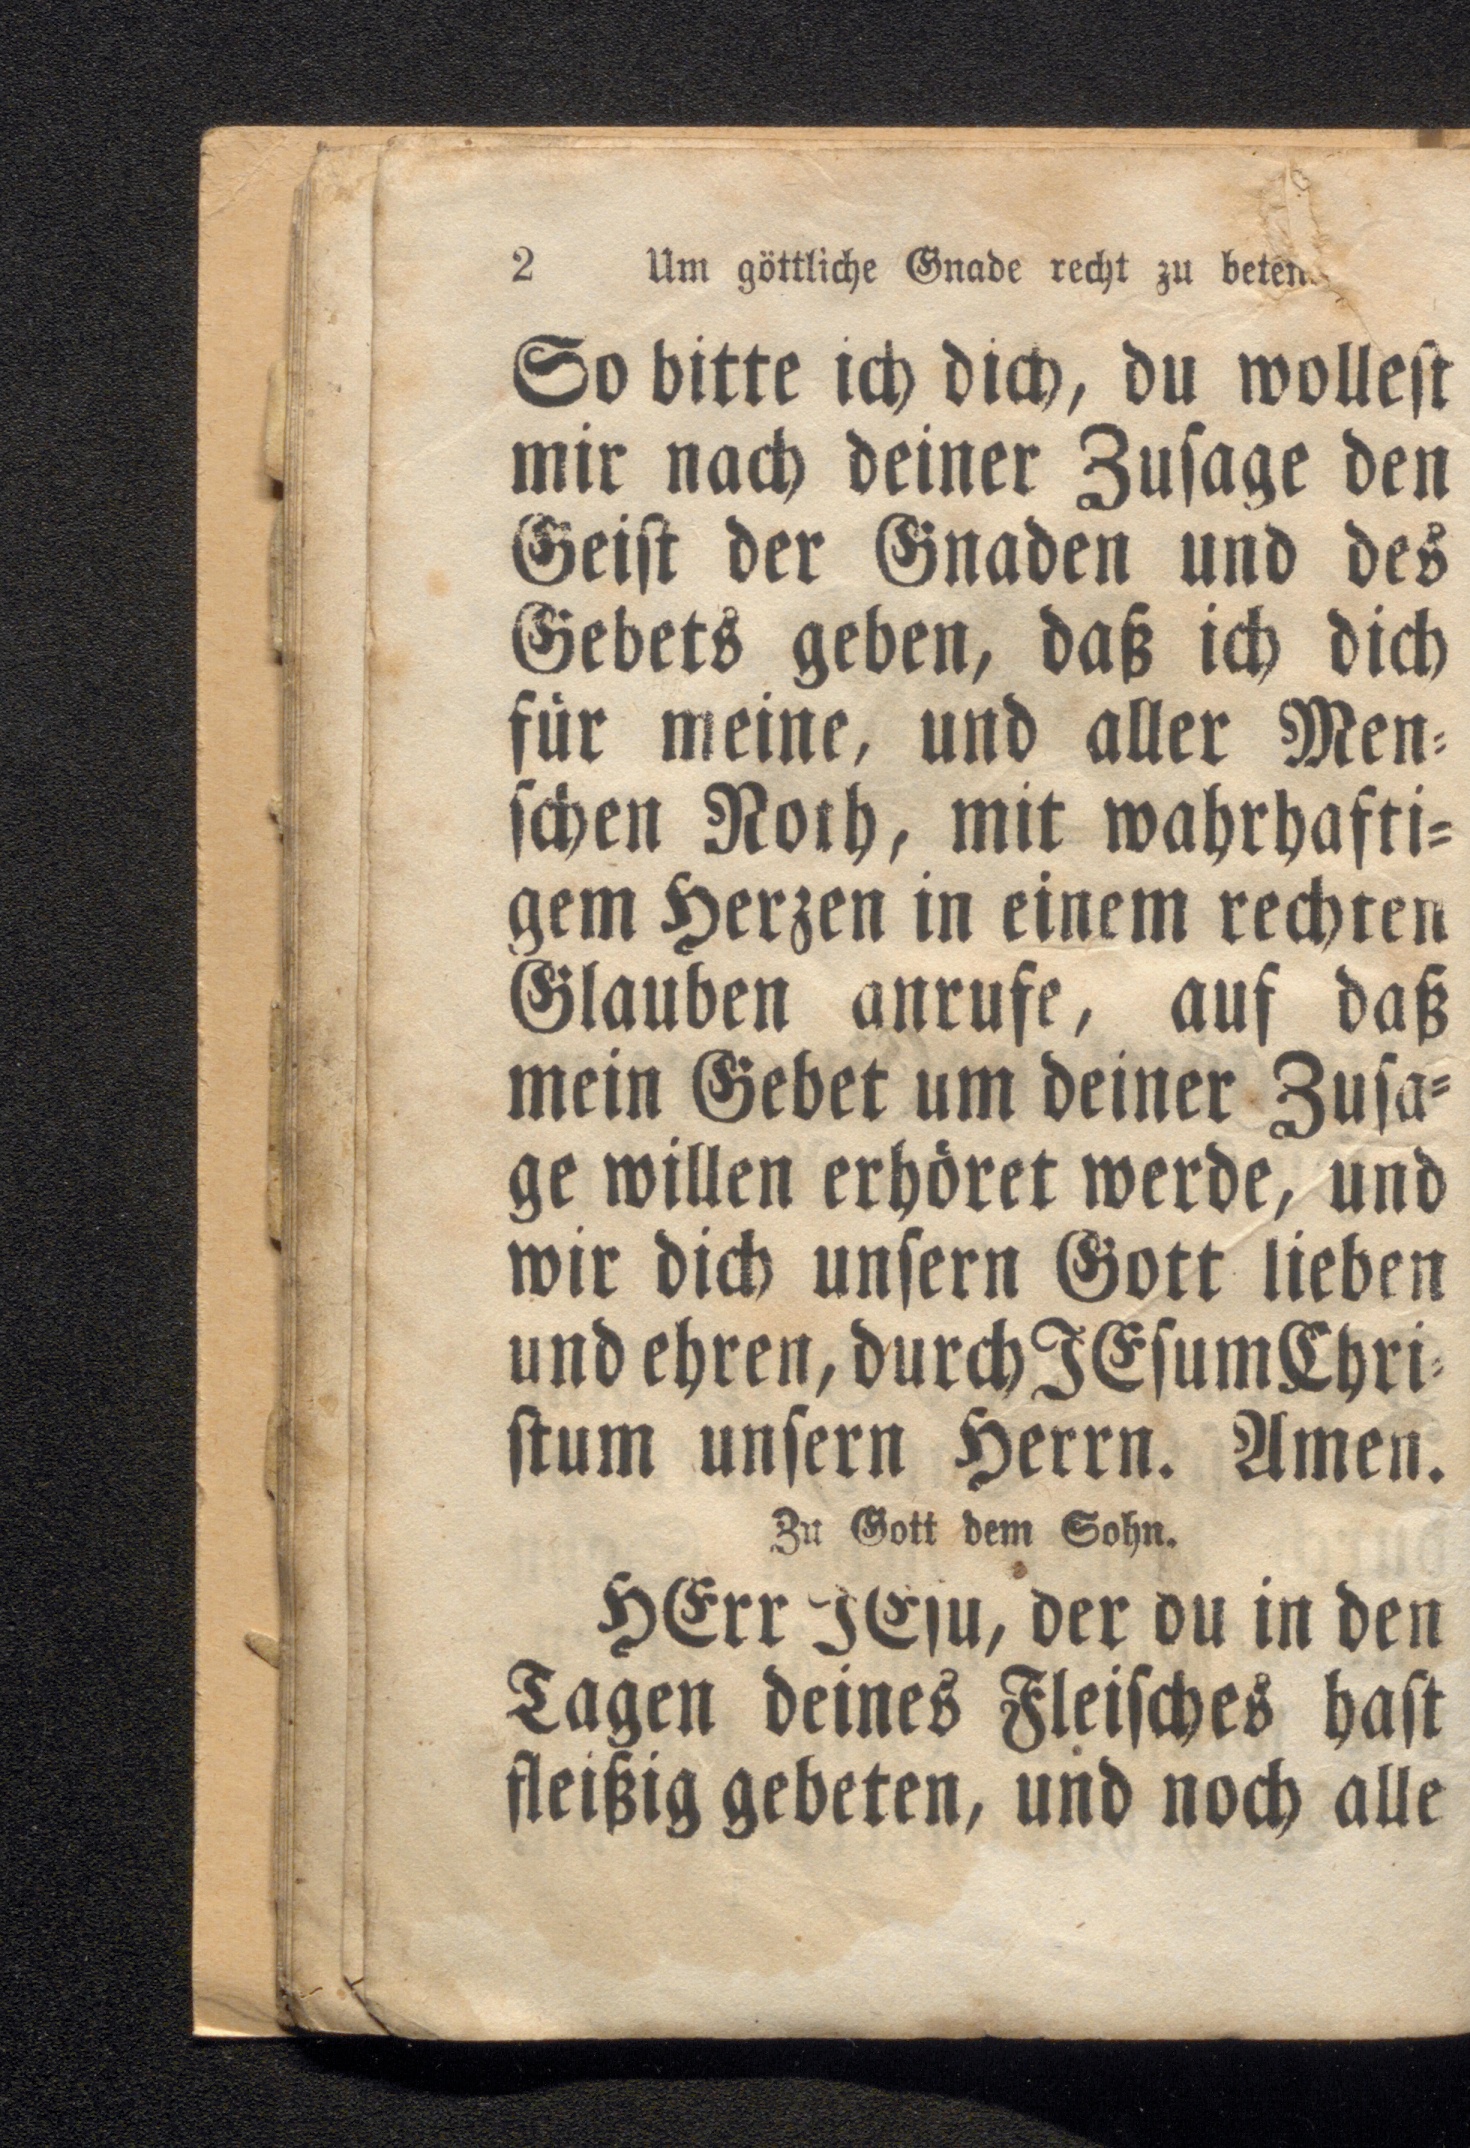 2 Um göttliche Gnade recht zu beten.
So bitte ich dich, du wolleſt
mir nach deiner Zuſage den
Geiſt der Gnaden und des
Gebets geben, daß ich dich
für meine, und aller Men⸗
ſchen Noth, mit wahrhafti⸗
gem Herzen in einem rechten
Glauben anrufe, auf daß
mein Gebet um deiner Zuſa⸗
ge willen erhöret werde, und
wir dich unſern Gott lieben
und ehren, durch JEſum Chri⸗
ſtum unſern Herrn. Amen.
Zu Gott dem Sohn.
HErr JEſu, der du in den
Tagen deines Fleiſches haſt
fleißig gebeten, und noch alle